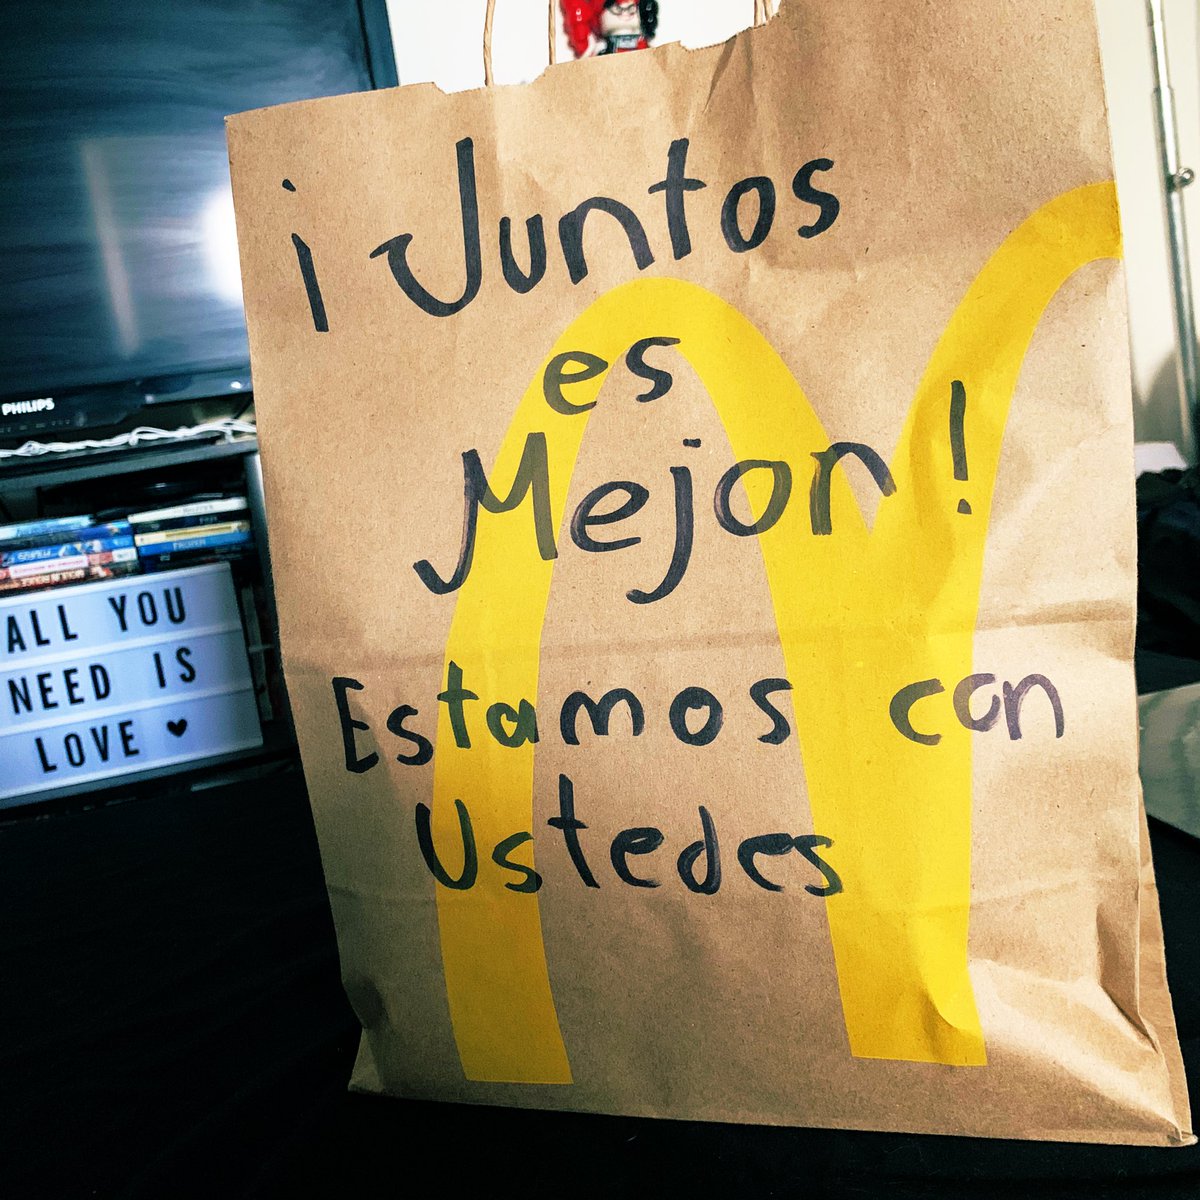 ¡ Juntos
es
Mejor!
Estamos con
Ustedes
PHILIPS
ALL YOU
NEED IS
LOVE ♥